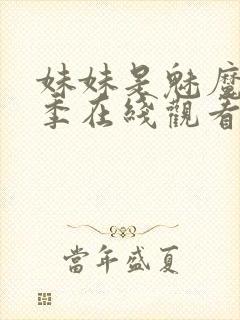 妹妹是魅魔
季在线观看
當年盛夏